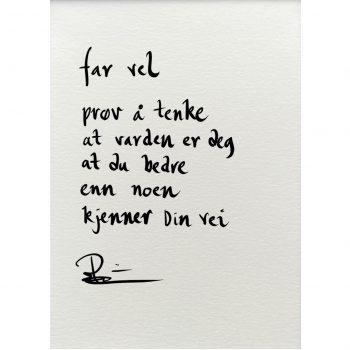 far vel
prøv å tenke
at varden er deg
at du bedre
enn noen
kjenner Din vei